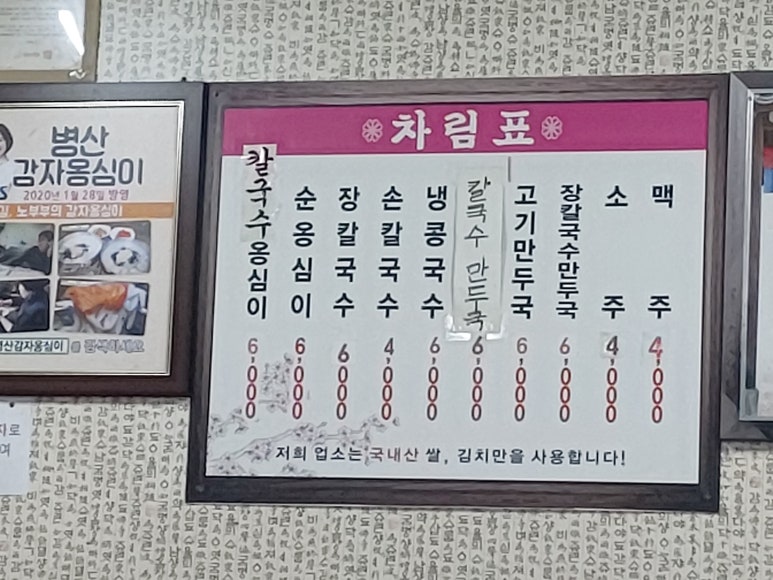 병산
감자옹심이
2020년 1월 28일 방영
노부부의 감자옹심이
병산감자옹심이 를 검색하세요
차림표
칼국수옹심이 6,000
순옹심이 6,000
장칼국수 6,000
손칼국수 4,000
냉콩국수 6,000
칼국수 만두국 6,000
고기만두국 6,000
장칼국수만두국 6,000
소주 4,000
맥주 4,000
저희 업소는 국내산 쌀, 김치만을 사용합니다!